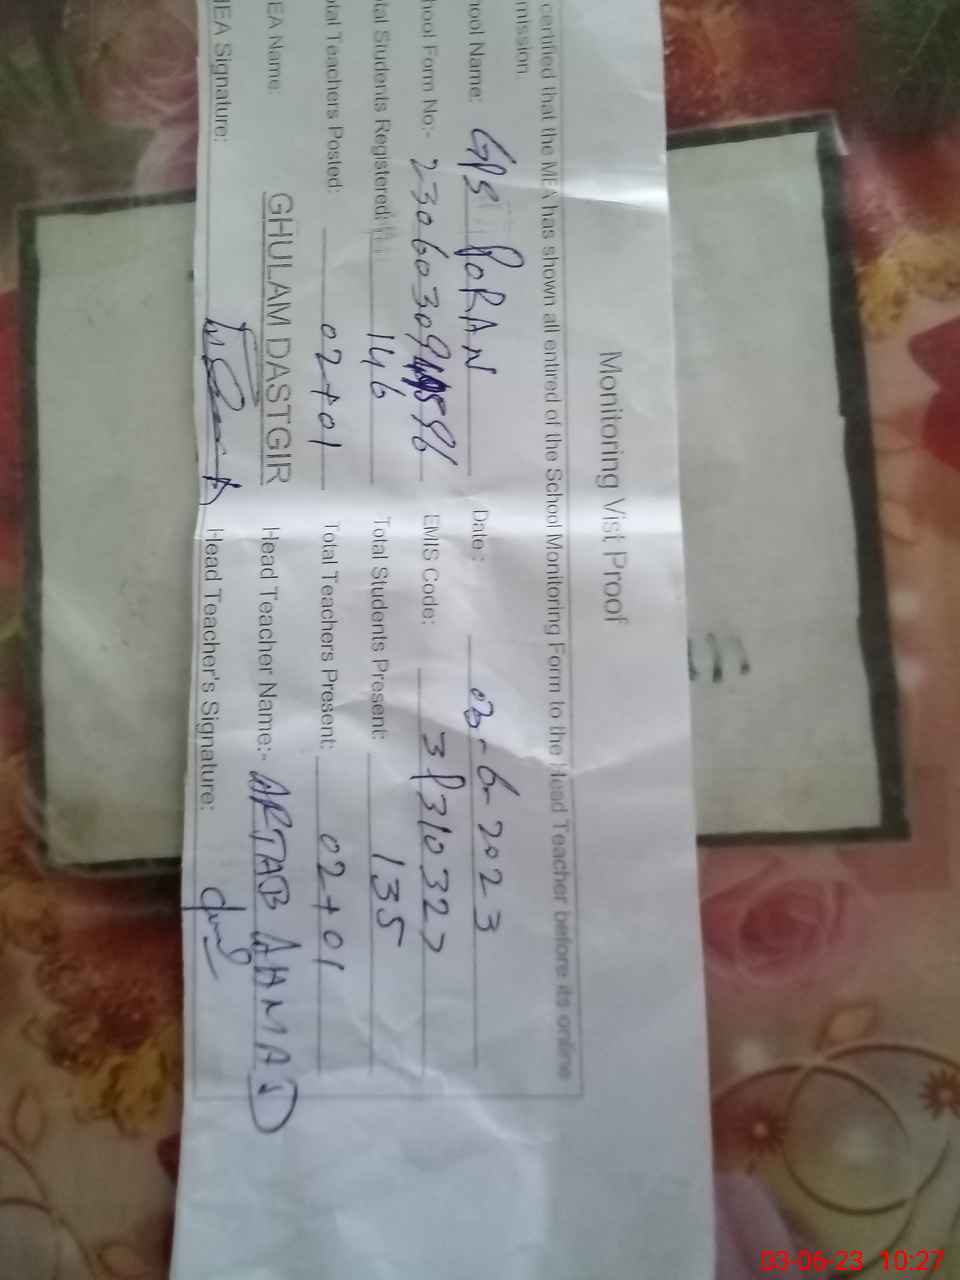 Monitoring Vist Proof
certified that the MEA has shown all entired of the School Monitoring Form to the Head Teacher before its online
mission.
hool Name: GPS PORAN Date: 03-6-2023
hool Form No:- EMIS Code:
tal Students Registered: 146 Total Students Present: 135
otal Teachers Posted: 02+01 Total Teachers Present: 02+01
EA Name: GHULAM DASTGIR Head Teacher Name:- ARTAB AHMAD
MEA Signature: Head Teacher's Signature:
03-06-23 10:27